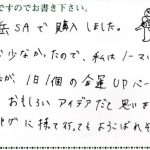 ですのでお書き下さい。
岳SAで購入しました。
少なかったので、私はノーマ
が 1日1個の金運UPパー
おもしろいアイデアだと思いま
げに持て行ってもよろこばれそ